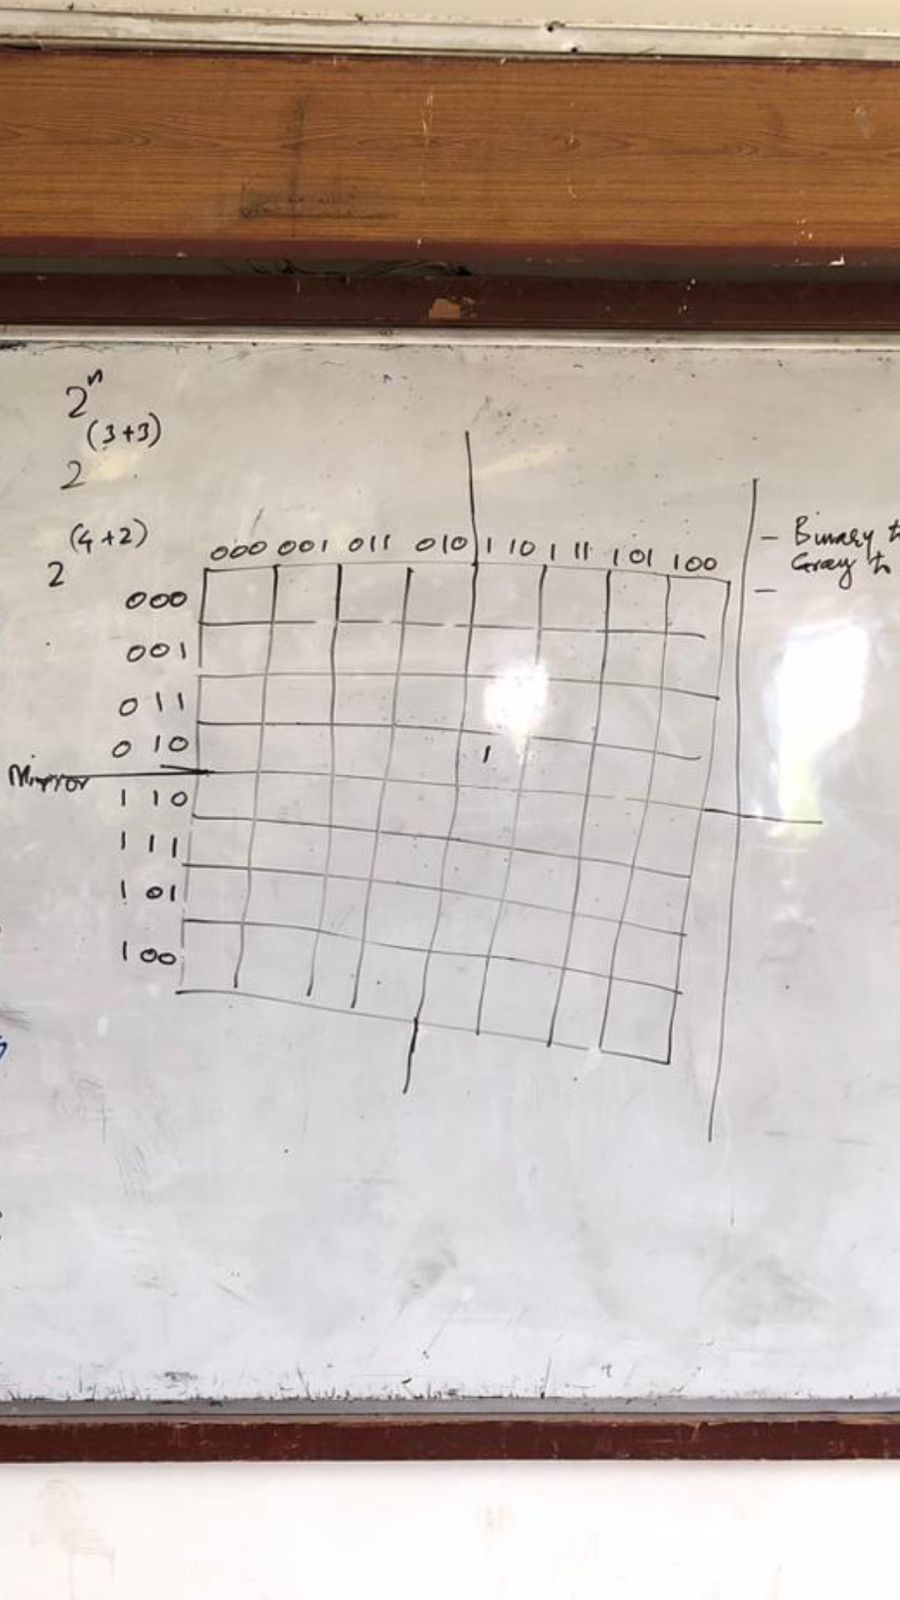 2ⁿ
2^(3+3)
2^(4+2)
000 001 011 010 110 111 101 100
000
001
011
010
1
Mirror
110
111
101
100
- Binary to
Gray to
-